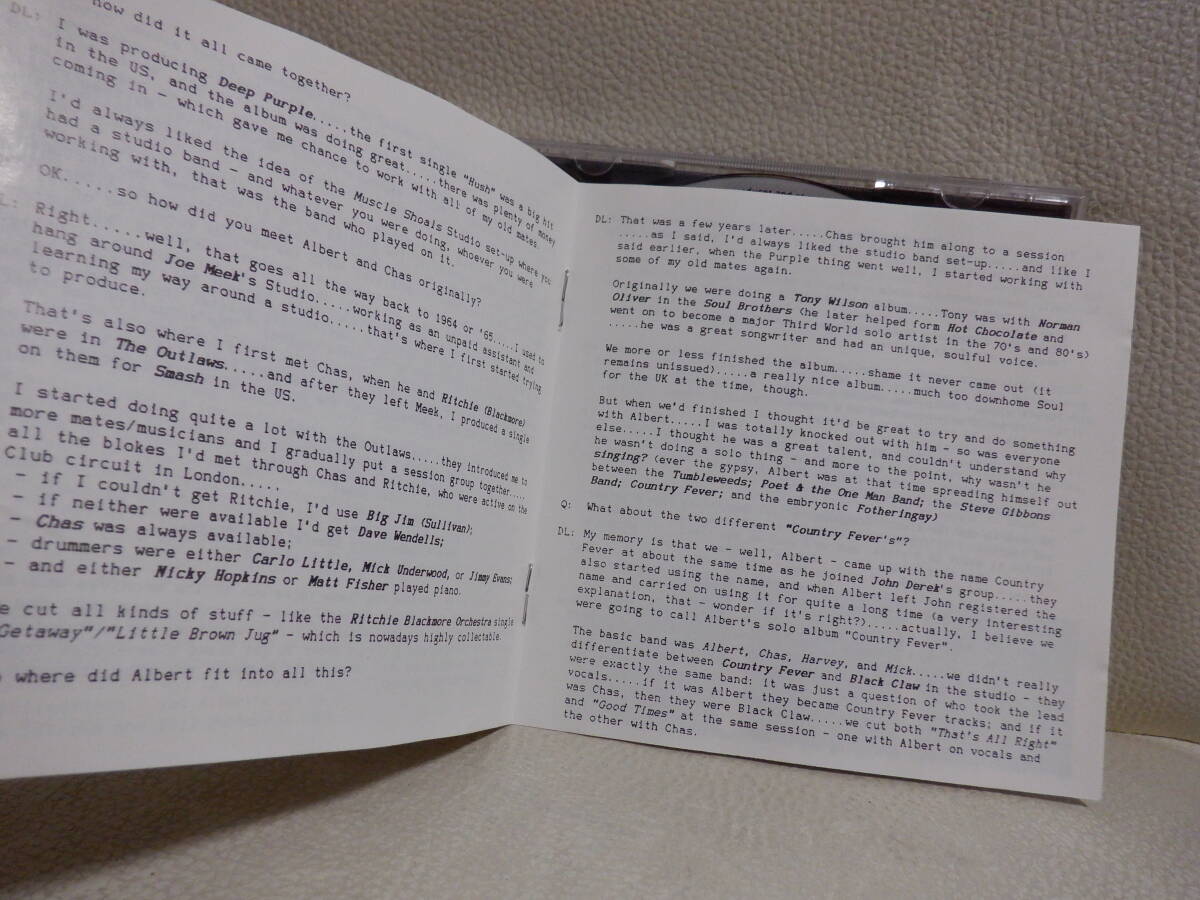 how did it all came together?
DL: I was producing Deep Purple.....the first single "Hush" was a big hit
in the US, and the album was doing great.....there was plenty of money
coming in - which gave me chance to work with all of my old mates.
I'd always liked the idea of the Muscle Shoals Studio set-up where you
had a studio band - and whatever you were doing, whoever you were
working with, that was the band who played on it.
OK.....so how did you meet Albert and Chas originally?
L: Right.....well, that goes all the way back to 1964 or '65.....I used to
hang around Joe Meek's Studio.....working as an unpaid assistant and
learning my way around a studio.....that's where I first started trying
to produce.
That's also where I first met Chas, when he and Ritchie (Blackmore)
were in The Outlaws.....and after they left Meek, I produced a single
on them for Smash in the US.
I started doing quite a lot with the Outlaws.....they introduced me to
more mates/musicians and I gradually put a session group together.....
all the blokes I'd met through Chas and Ritchie, who were active on the
Club circuit in London.....
- if I couldn't get Ritchie, I'd use Big Jim (Sullivan);
- if neither were available I'd get Dave Wendells;
- Chas was always available;
- drummers were either Carlo Little, Mick Underwood, or Jimmy Evans;
- and either Nicky Hopkins or Matt Fisher played piano.
e cut all kinds of stuff - like the Ritchie Blackmore Orchestra single
Getaway"/"Little Brown Jug" - which is nowadays highly collectable.
where did Albert fit into all this?
DL: That was a few years later.....Chas brought him along to a session
.....as I said, I'd always liked the studio band set-up.....and like I
said earlier, when the Purple thing went well, I started working with
some of my old mates again.
Originally we were doing a Tony Wilson album.....Tony was with Norman
Oliver in the Soul Brothers (he later helped form Hot Chocolate and
went on to become a major Third World solo artist in the 70's and 80's)
.....he was a great songwriter and had an unique, soulful voice.
We more or less finished the album.....shame it never came out (it
remains unissued).....a really nice album.....much too downhome Soul
for the UK at the time, though.
But when we'd finished I thought it'd be great to try and do something
with Albert.....I was totally knocked out with him - so was everyone
else.....I thought he was a great talent, and couldn't understand why
he wasn't doing a solo thing - and more to the point, why wasn't he
singing? (ever the gypsy, Albert was at that time spreading himself out
between the Tumbleweeds; Poet & the One Man Band; the Steve Gibbons
Band; Country Fever; and the embryonic Fotheringay)
Q: What about the two different "Country Fever's"?
DL: My memory is that we - well, Albert - came up with the name Country
Fever at about the same time as he joined John Derek's group.....they
also started using the name, and when Albert left John registered the
name and carried on using it for quite a long time (a very interesting
explanation, that - wonder if it's right?).....actually, I believe we
were going to call Albert's solo album "Country Fever".
The basic band was Albert, Chas, Harvey, and Mick.....we didn't really
differentiate between Country Fever and Black Claw in the studio - they
were exactly the same band: it was just a question of who took the lead
vocals.....if it was Albert they became Country Fever tracks; and if it
was Chas, then they were Black Claw.....we cut both "That's All Right"
and "Good Times" at the same session - one with Albert on vocals and
the other with Chas.